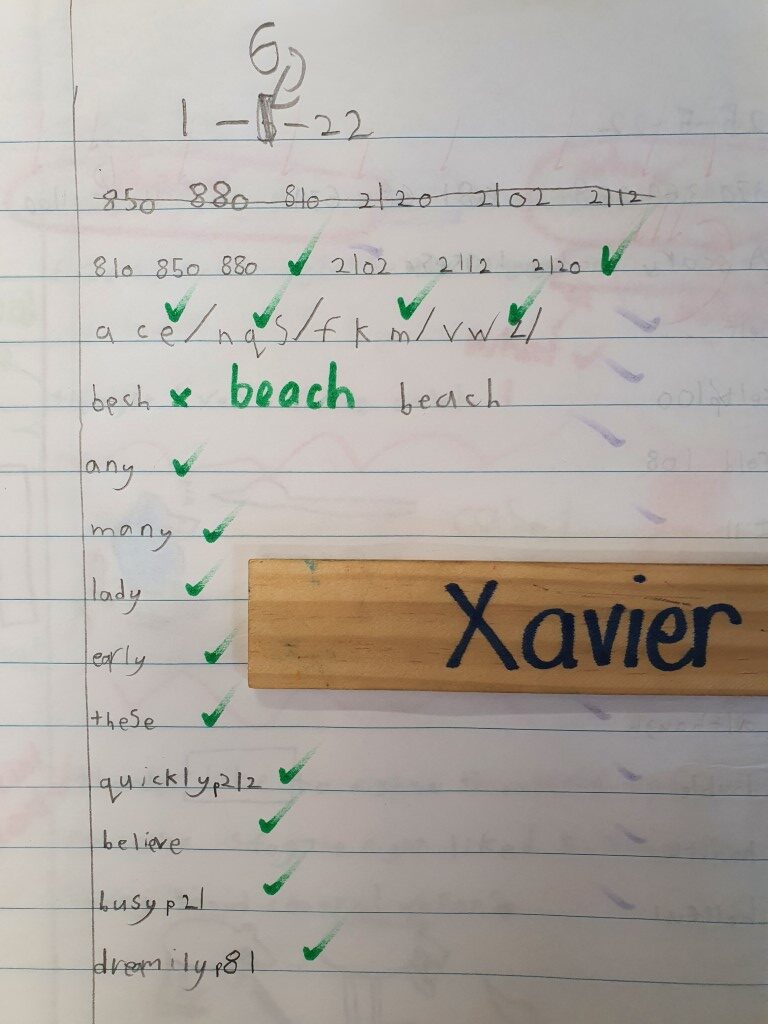 6
1 - - 22
850 880 810 2120 2102 2112
810 850 880 2102 2112 2120
a c e / n q s / f k m / v w z /
bech beach beach
any
many
lady
Xavier
early
these
quickly p212
believe
busy p21
dreamily p81